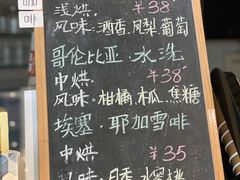 浅烘 ¥38
风味：酒香.凤梨.葡萄
哥伦比亚·水洗
中烘 ¥38
风味：柑橘.木瓜.焦糖
埃塞·耶加雪啡
中烘 ¥35